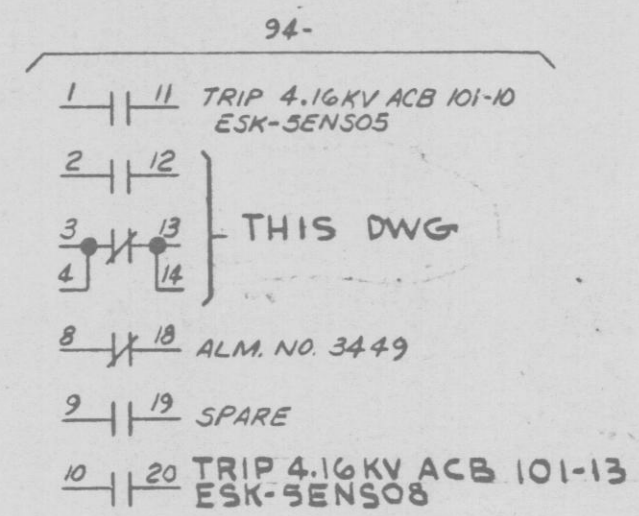 94-
1 11 TRIP 4.16KV ACB 101-10
ESK-5ENS05
2 12
THIS DWG
3 13
4 14
8 18 ALM. NO. 3449
9 19 SPARE
10 20 TRIP 4.16KV ACB 101-13
ESK-5ENS08